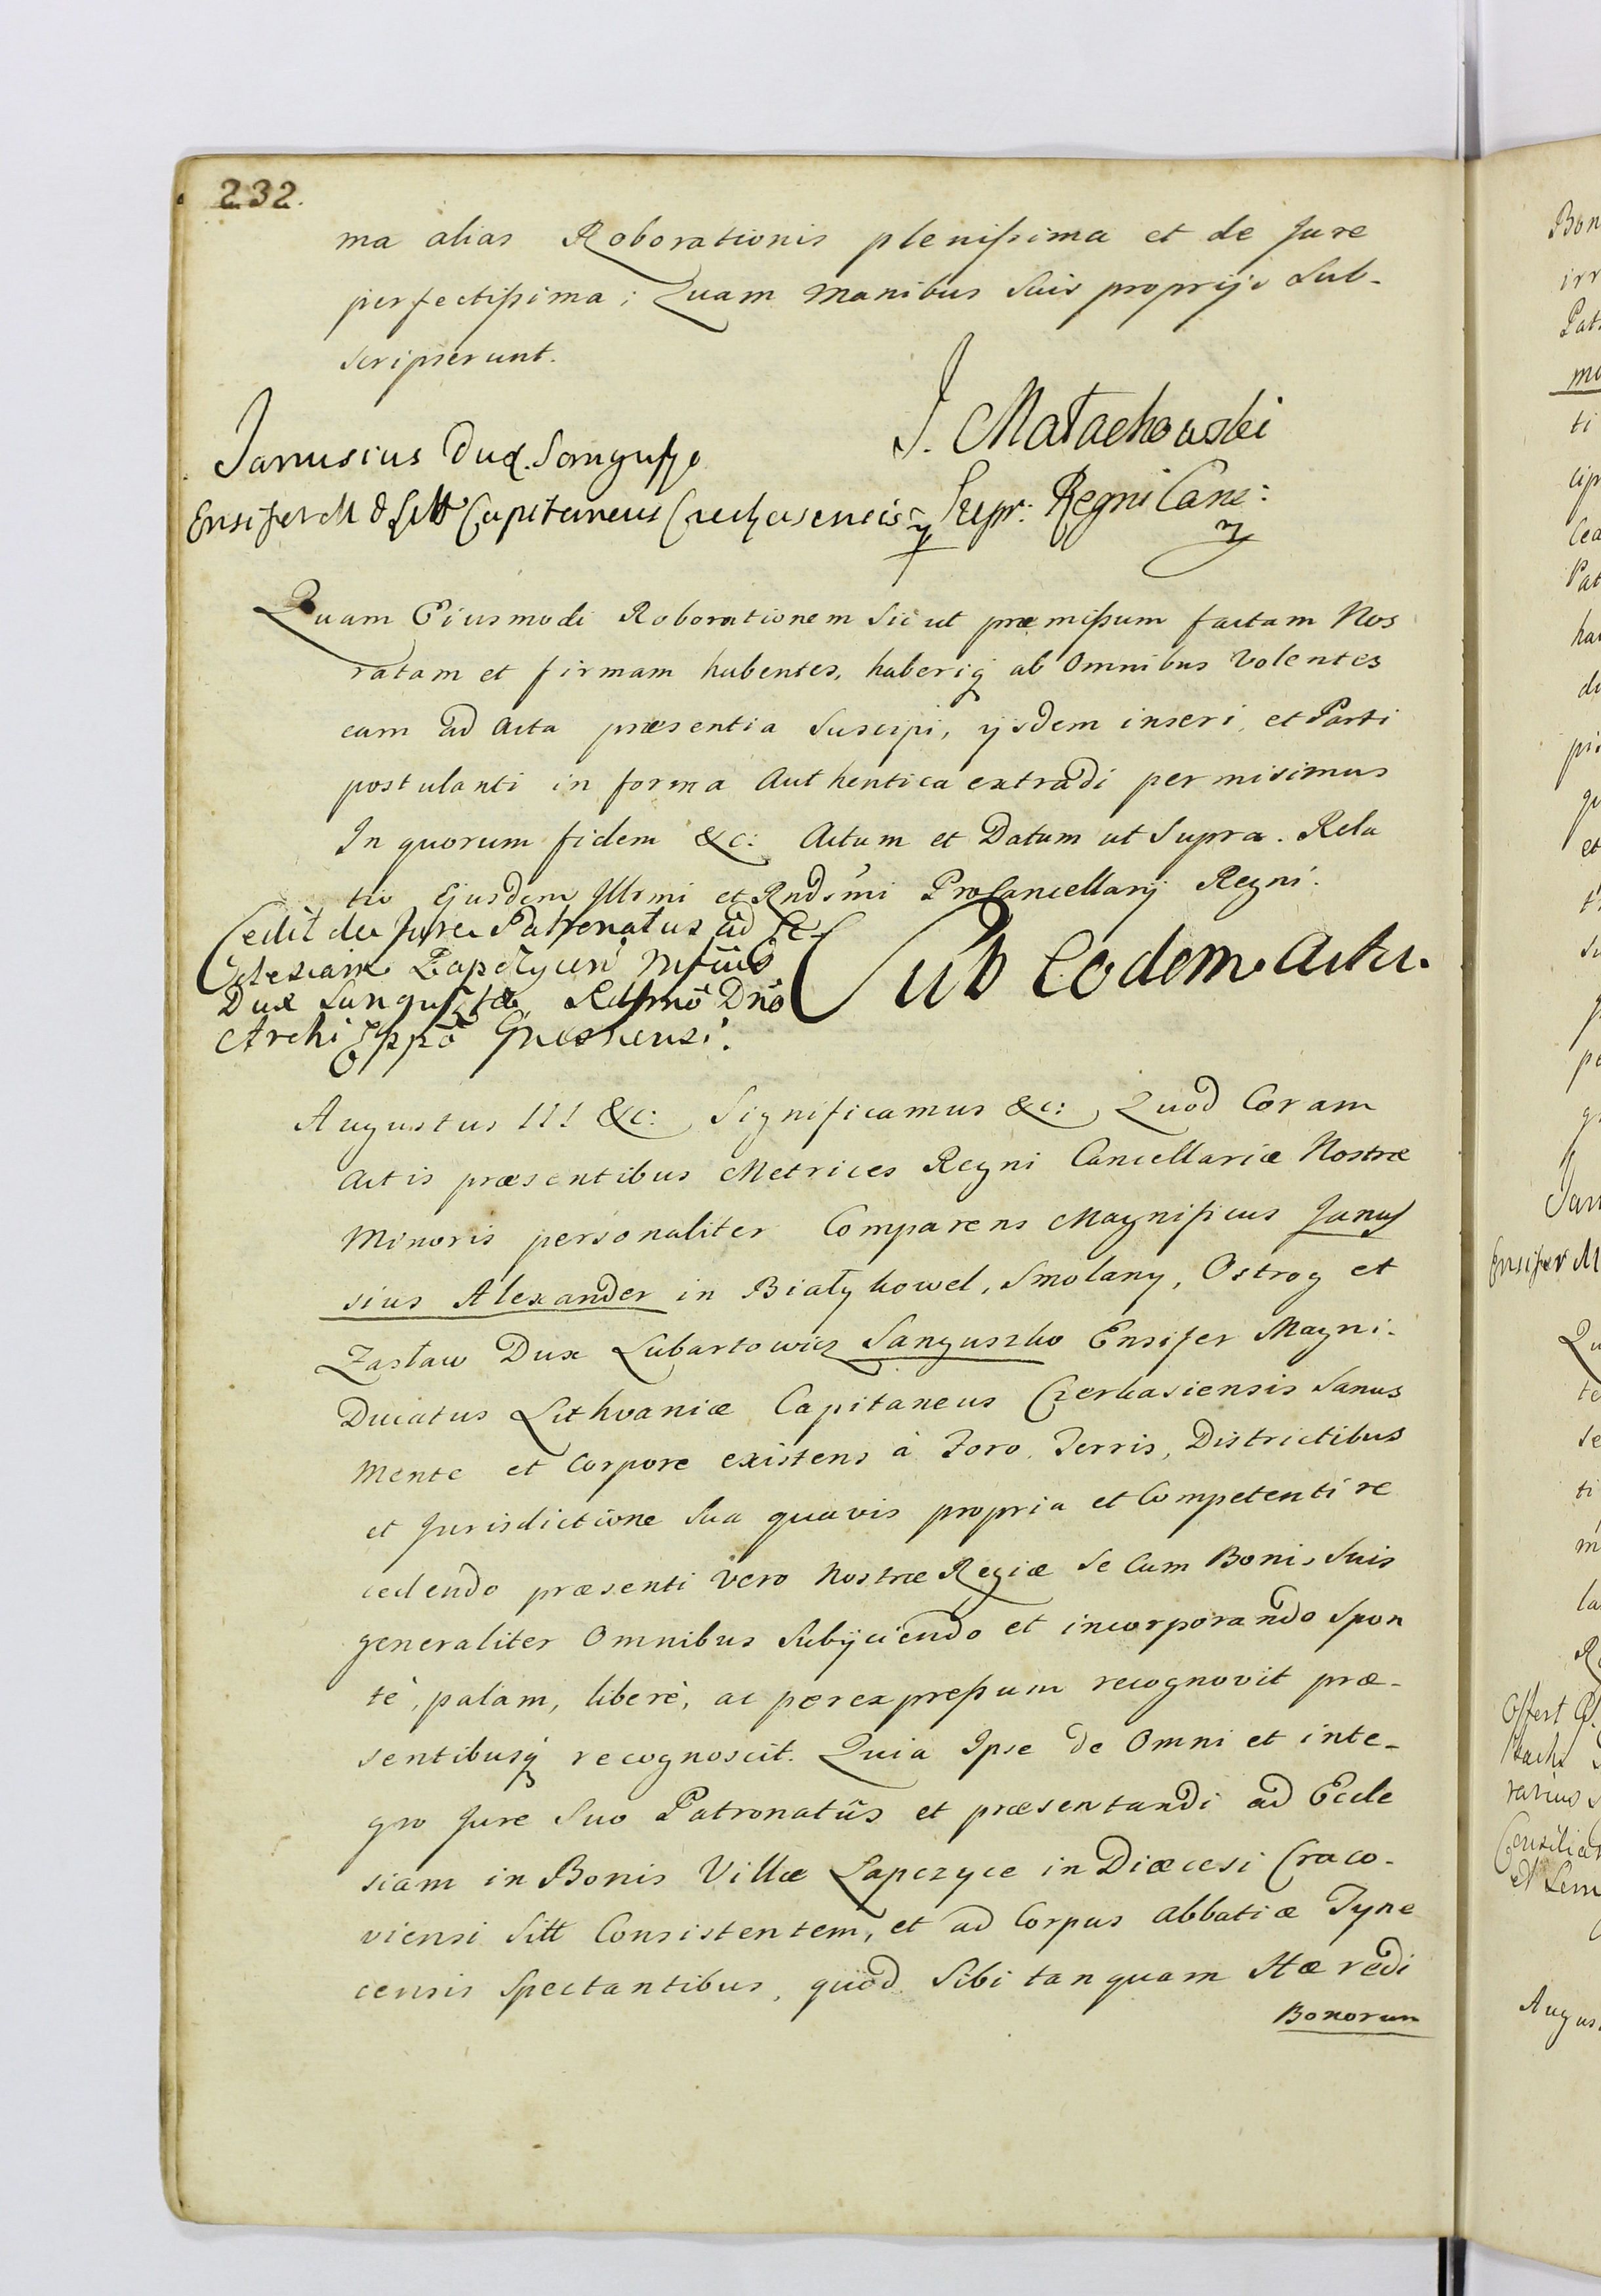 232.
ma alias Roborationis plenissima et de Jure
perfectissima; Quam manibus suis proprijs sub-
scripserunt.
J. Małachowski
Janusius Dux Sangusz
Supr: Regni Canc:
Ensifer M D Litt Capitaneus Czerkasensis
Quam Eiusmodi Roborationem sicut præmissum factam Nos
ratam et firmam habentes, haberiq ab Omnibus Volentes
eam ad Acta præsentia Suscipi, ijsdem inseri, et Parti
postulanti in forma Authentica extradi permisimus
In quorum fidem &c: Actum et Datum ut Supra. Rela
tio Ejusdem Illrmi et Rndsmi ProCancellarij Regni.
Cedit de Jure Patronatus ad Ec-
clesiam Łapczycen Mfcus
Dux Sanguszko Rdsmo Dno
Archi Eppo Gnesnensi.
Sub Eodem Actu.
Augustus III &c: Significamus &c: Quod Coram
Actis præsentibus Metrices Regni Cancellariæ Nostræ
Minoris personaliter Comparens Magnificus Janus
sius Alexander in Białykowel, Smolany, Ostrog et
Zasław Dux Lubartowicz Sanguszko Ensifer Magni-
Ducatus Lithvaniæ Capitaneus Czerkasiensis Sanus
Mente et Corpore existens à Foro, Terris, Districtibus
et Jurisdictione Sua quavis propria et Competenti re
cedendo præsenti Vero Nostræ Regiæ se Cum Bonis Suis
generaliter Omnibus Subijciendo et incorporando Spon
tè, palam, liberè, ac per expressum recognovit præ-
sentibusq recognoscit. Quia Ipse de Omni et inte-
gro Jure Suo Patronatûs et præsentandi ad Eccle
siam in Bonis Villæ Łapczyce in Diæcesi Craco-
viensi Sitt Consistentem, et ad Corpus Abbatiæ Tyne
censis Spectantibus, quod Sibi tanquam Hæredi
Bonorum